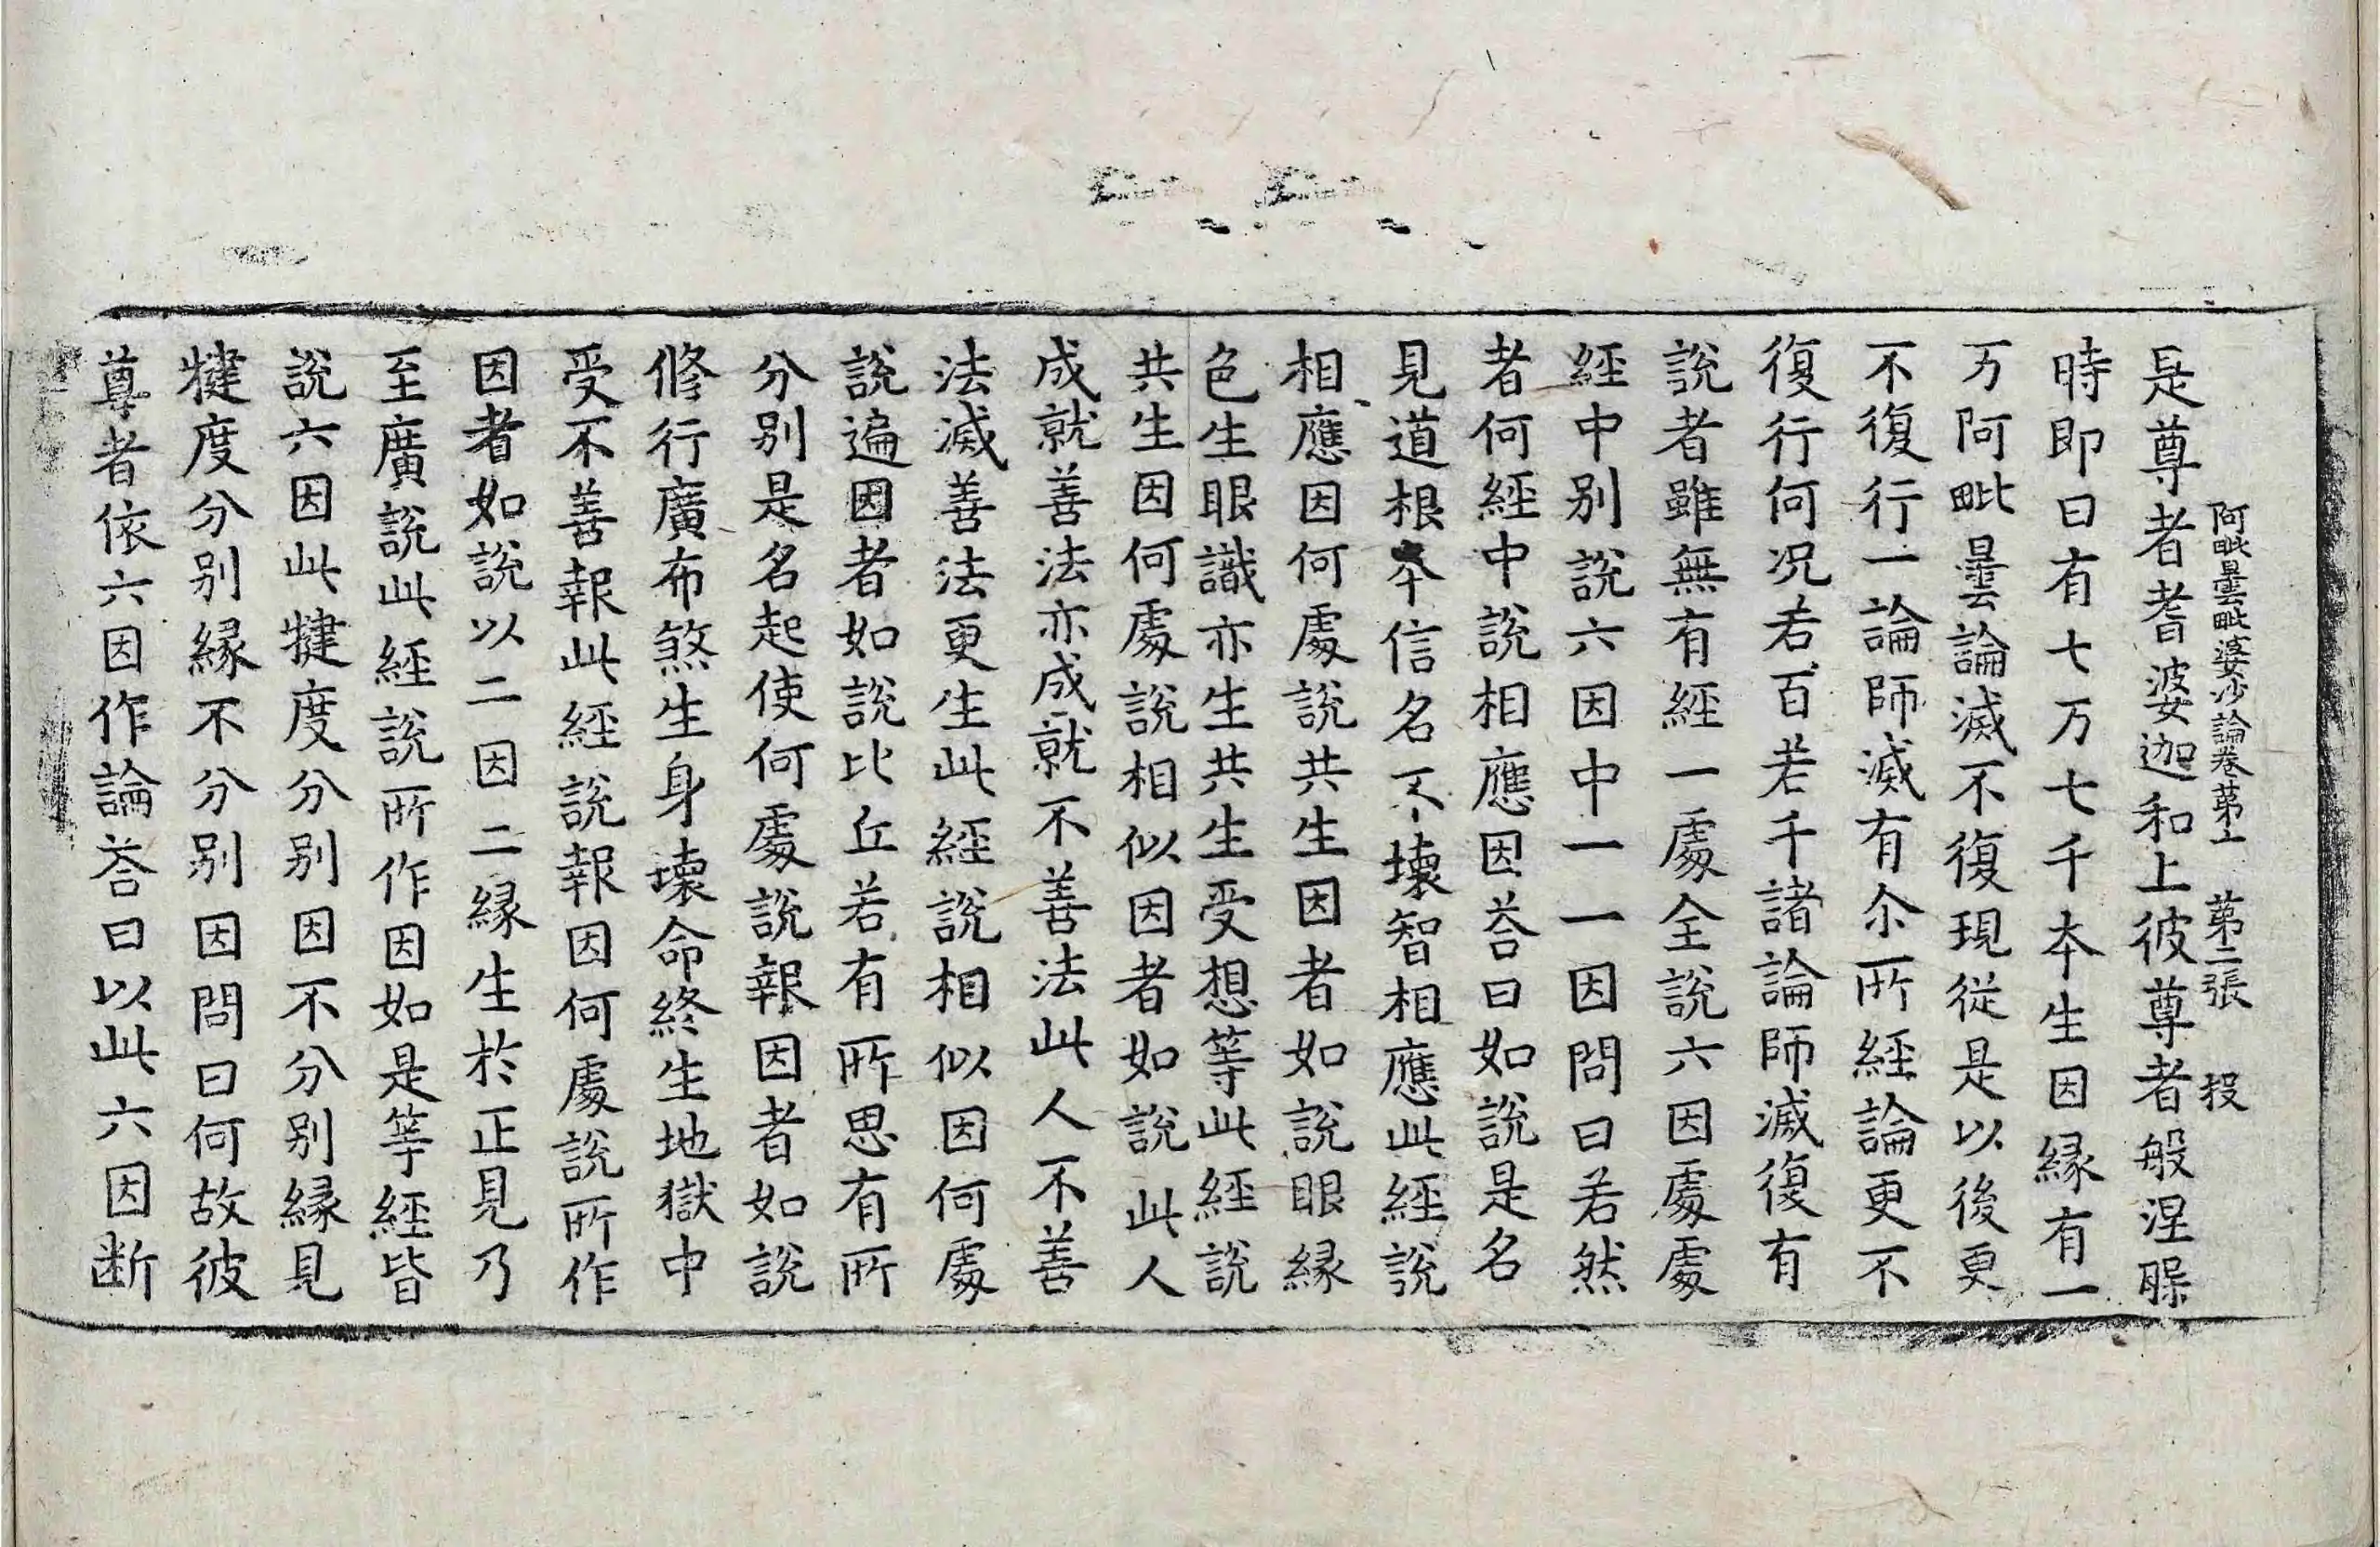 阿毗曇毗婆沙論卷第十一 第二張 投
是尊者耆婆迦和上彼尊者般涅槃
時即日有七万七千本生因緣有一
万阿毗曇論滅不復現從是以後更
不復行一論師滅有尒所經論更不
復行何况若百若千諸論師滅復有
說者雖無有經一處全說六因處處
經中别說六因中一一因問曰若然
者何經中說相應因荅曰如說是名
見道根本信名不壞智相應此經說
相應因何處說共生因者如說眼緣
色生眼識亦生共生受想等此經說
共生因何處說相似因者如說此人
成就善法亦成就不善法此人不善
法滅善法更生此經說相似因何處
說遍因者如說比丘若有所思有所
分别是名起使何處說報因者如說
修行廣布煞生身壞命終生地獄中
受不善報此經說報因何處說所作
因者如說以二因二緣生於正見乃
至廣說此經說所作因如是等經皆
說六因此揵度分别因不分别緣見
揵度分别緣不分别因問曰何故彼
尊者依六因作論荅曰以此六因断